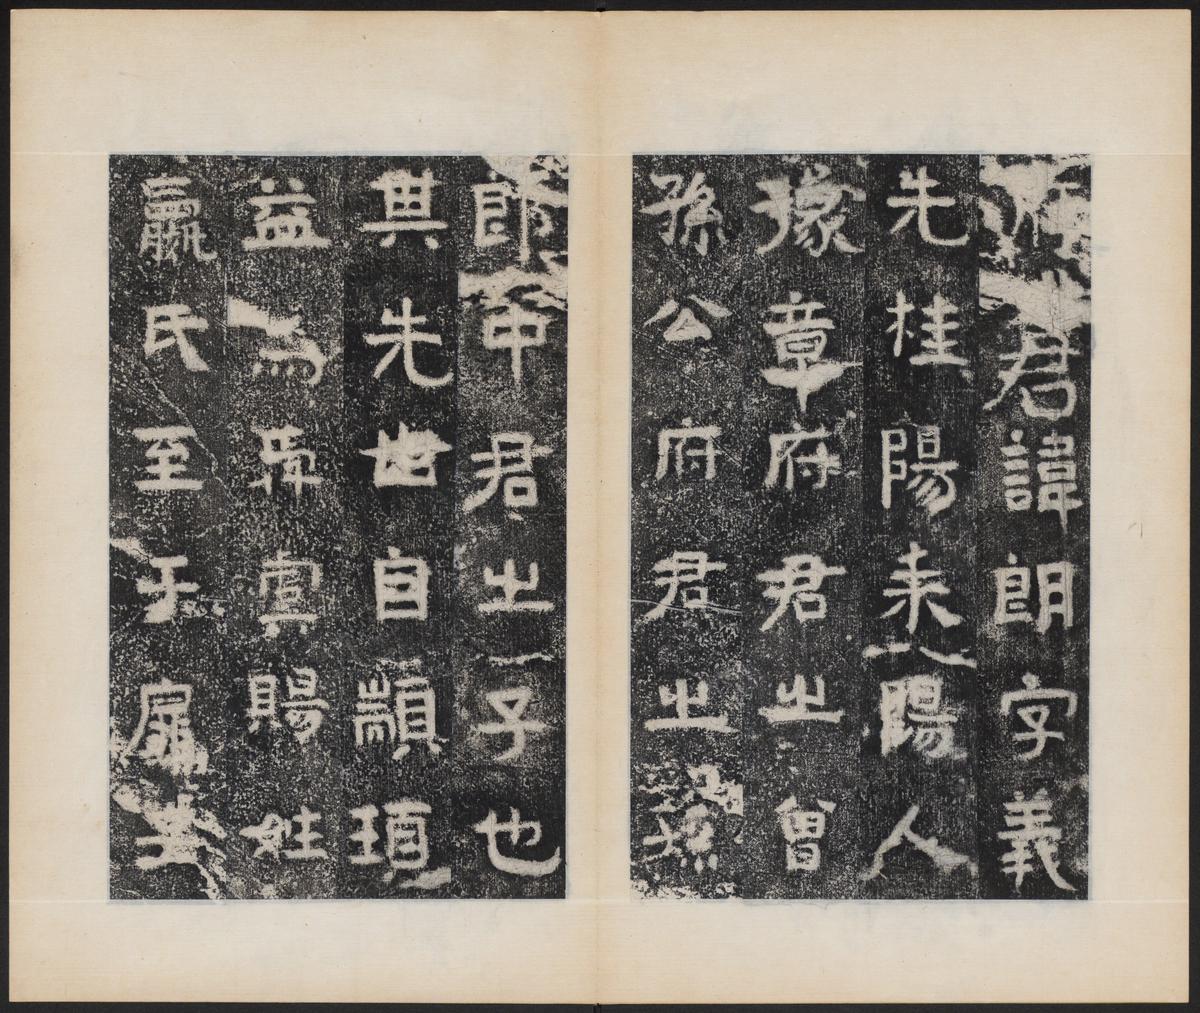 君諱朗字義
先桂陽耒陽人
豫章府君之曾
孫公府君之孫
郎中君之子也
其先世自顓頊
益為舜虞賜姓
嬴氏至于扉